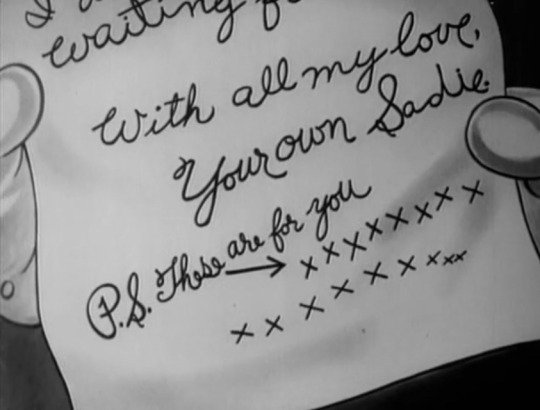 I
waiting
With all my love,
Your own Sadie.
P.S. These are for you
→ x x x x x x x x
x x x x x x x x x